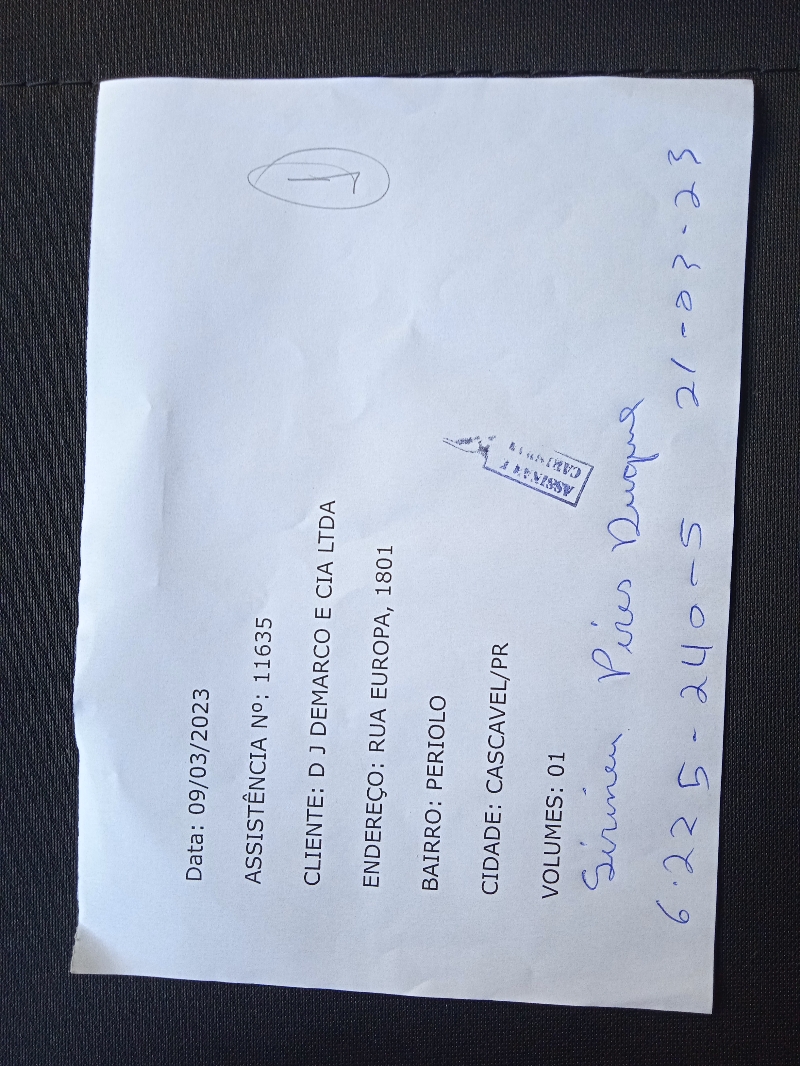 Data: 09/03/2023
ASSISTÊNCIA Nº: 11635
CLIENTE: D J DEMARCO E CIA LTDA
ENDEREÇO: RUA EUROPA, 1801
BAIRRO: PERIOLO
CIDADE: CASCAVEL/PR
VOLUMES: 01
ASSINAR E
Pires Duque
6.225-240-5 21-03-23